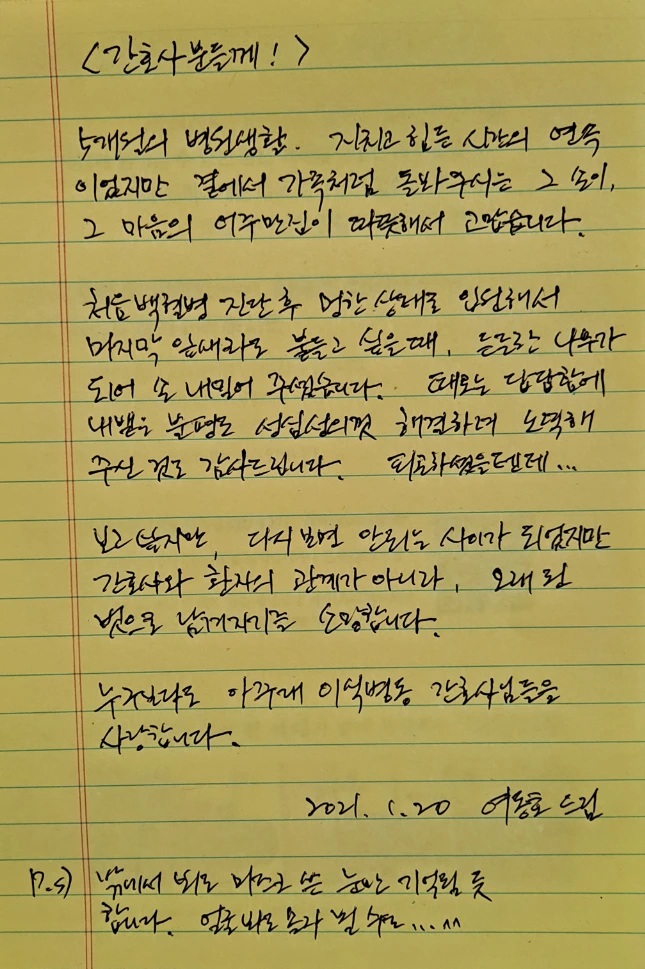 <간호사분들께!>
5개월의 병원생활. 지치고 힘든 시간의 연속
이었지만 곁에서 가족처럼 돌봐주시는 그 손이,
그 마음의 어루만짐이 따뜻해서 고맙습니다.
처음 백혈병 진단 후 멍한 상태로 입원해서
마지막 잎새라도 붙들고 싶을때, 든든한 나무가
되어 손 내밀어 주셨습니다. 때로는 답답함에
내뱉은 불평도 성심성의껏 해결하려 노력해
주신 것도 감사드립니다. 피곤하셨을텐데...
보고 싶지만, 다시 보면 안되는 사이가 되었지만
간호사와 환자의 관계가 아니라, 오래된
벗으로 남겨지기를 소망합니다.
누구보다도 아주대 이식병동 간호사님들을
사랑합니다.
2021. 1. 20 여동호 드림
P.S) 밖에서 봐도 마스크 쓴 눈만 기억될 듯
합니다. 얼굴 봐도 몰라 뵐 수도...^^